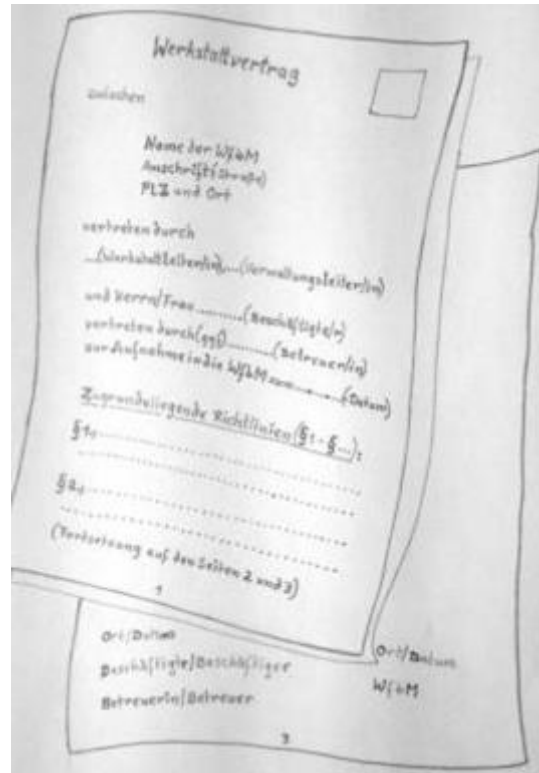 Werkstattvertrag
zwischen
Name der WfbM
Anschrift (Straße)
PLZ und Ort
vertreten durch
...(Werkstattleiter/in),...(Verwaltungsleiter/in)
und Herrn/Frau..........(Beschäftigte/r)
vertreten durch(ggf)..........(Betreuer/in)
zur Aufnahme in die WfbM zum........(Datum)
Zugrundeliegende Richtlinien (§1 - §...):
§1,..............................
..............................
§2,..............................
..............................
(Fortsetzung auf den Seiten 2 und 3)
1
Ort/Datum
Ort/Datum
Beschäftigte/Beschäftiger
WfbM
Betreuerin/Betreuer
3